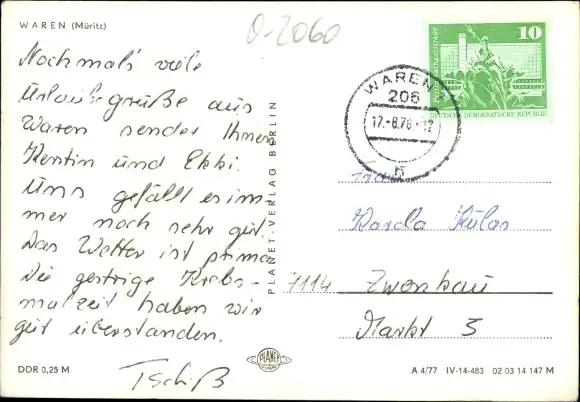 WAREN (Müritz)
O-2060
Nochmal's viele
Urlaubsgrüße aus
Waren senden Ihnen
Kerstin und Ekki.
Uns gefällt es im-
mer noch sehr gut.
Das Wetter ist prima
Die gestrige Krebs-
malzeit haben wir
gut überstanden.
Tschüß
DDR 0,25 M
PLANET-VERLAG BERLIN
PLANET
10
DEUTSCHE DEMOKRATISCHE REPUBLIK
WAREN
206
17.-8.78.-12
h
Frau
Külas
7114 Zwenkau
Markt 3
A 4/77 IV-14-483 02 03 14 147 M